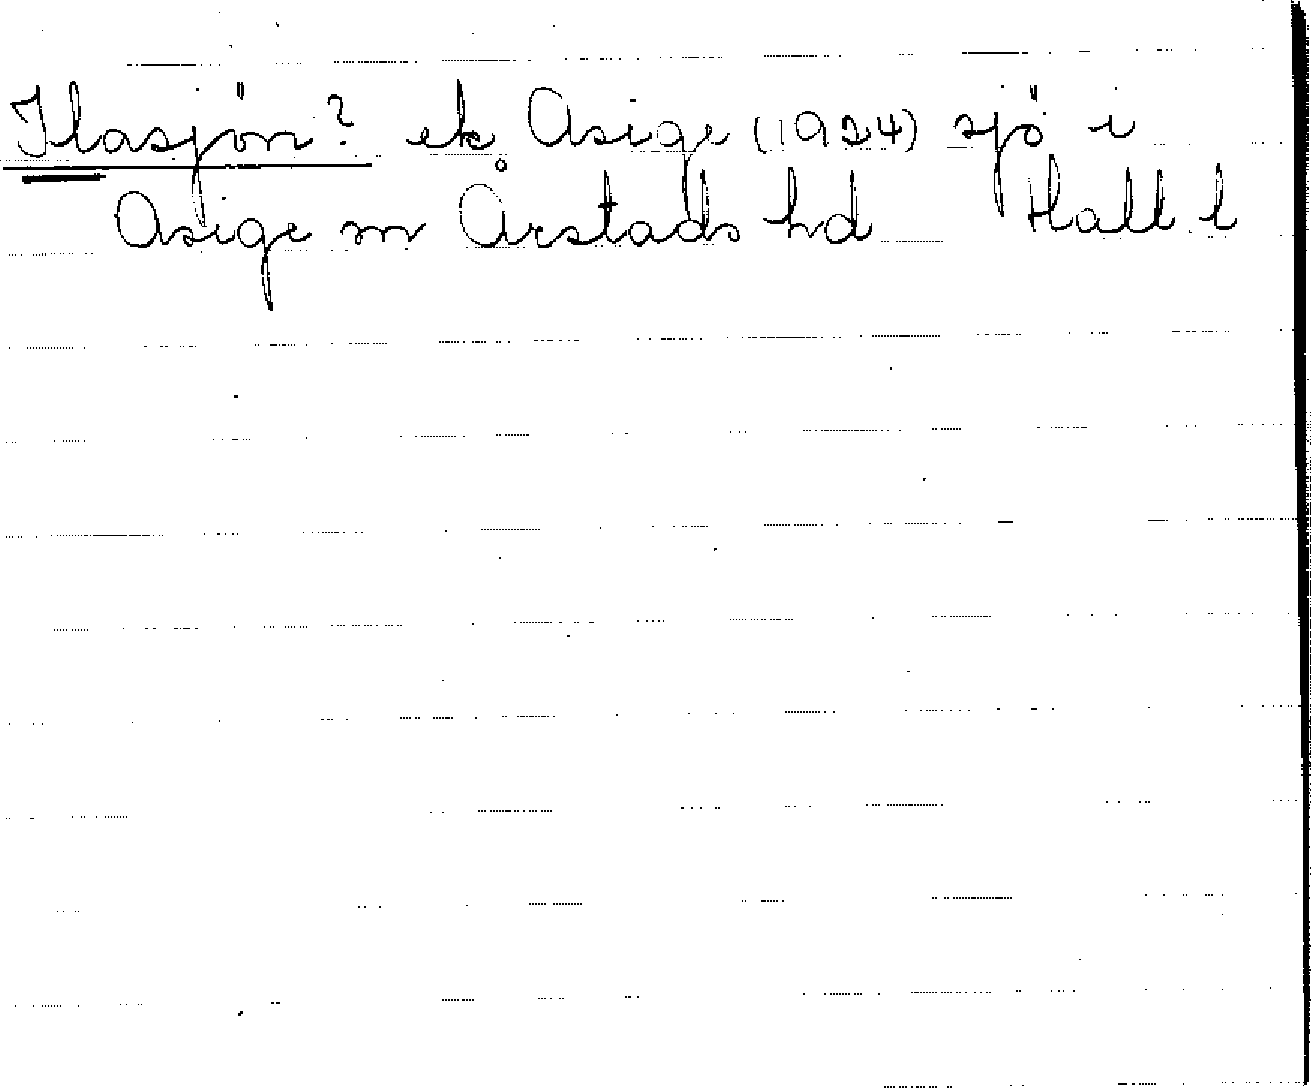 Ilasjön? ek Asige (1924) sjö i
Asige sn Årstads hd Hall l